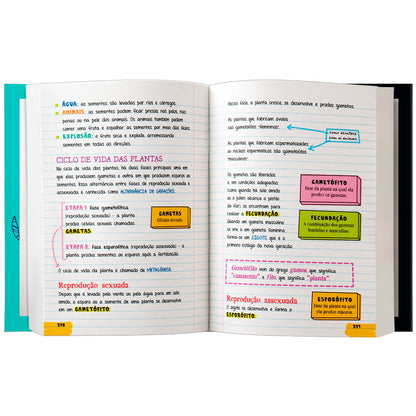 ÁGUA: as sementes são levadas por rios e córregos.
ANIMAIS: as sementes podem ficar presas nos pelos, nas
penas ou na pele dos animais. Os animais também podem
comer uma fruta e espalhar as sementes por meio das fezes.
EXPLOSÃO: a fruta seca e explode, arremessando
sementes em todas as direções.
CICLO DE VIDA DAS PLANTAS
No ciclo de vida das plantas, há duas fases principais: uma em
que elas produzem gametas e outra em que produzem esporos ou
sementes. Essa alternância entre fases de reprodução sexuada e
assexuada é conhecida como ALTERNÂNCIA DE GERAÇÕES.
ETAPA 1: Fase gametofítica
(reprodução sexuada) - a planta
produz células sexuais chamadas
GAMETAS
GAMETAS
Células sexuais.
ETAPA 2: Fase esporofítica (reprodução assexuada) - a planta
produz sementes ou esporos após a fertilização
O ciclo de vida da planta é chamado de METAGÊNESE.
Reprodução sexuada
Depois que é levado pelo vento ou pela água para um solo
úmido, o esporo ou a semente de uma planta se desenvolve
em um GAMETÓFITO.
240
Nessa fase, a planta cresce, se desenvolve e produz gametas.
As plantas que fabricam óvulos
são gametófitos "femininos".
As plantas que fabricam espermatozoides
ou núcleos espermáticos são gametófitos
"masculinos".
Os gametas são liberados
e, em condições adequadas
GAMETÓFITO
Fase da planta na qual ela
produz gametas.
realizar a FECUNDAÇÃO.
FECUNDAÇÃO
A combinação dos gametas
feminino e masculino.
une a um gameta feminino,
forma-se um ZIGOTO, que é o
primeiro estágio da nova geração.
Gametófito vem do grego gamos, que significa
"casamento", e fito, que significa "planta".
Reprodução assexuada
O zigoto se desenvolve e forma o
ESPORÓFITO.
ESPORÓFITO
Fase da planta na qual
ela produz esporos.
241